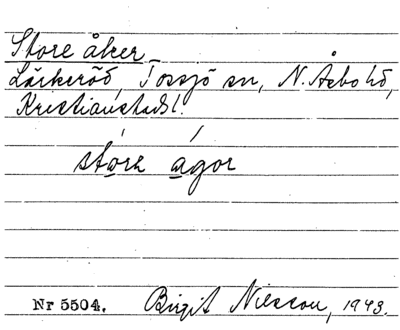 Store åker
Lärkeröd, Tossjö sn, N. Åsbo hd,
Kristianstads l.
stǫrɛ ągor
Nr 5504. Birgit Nilsson, 1943.